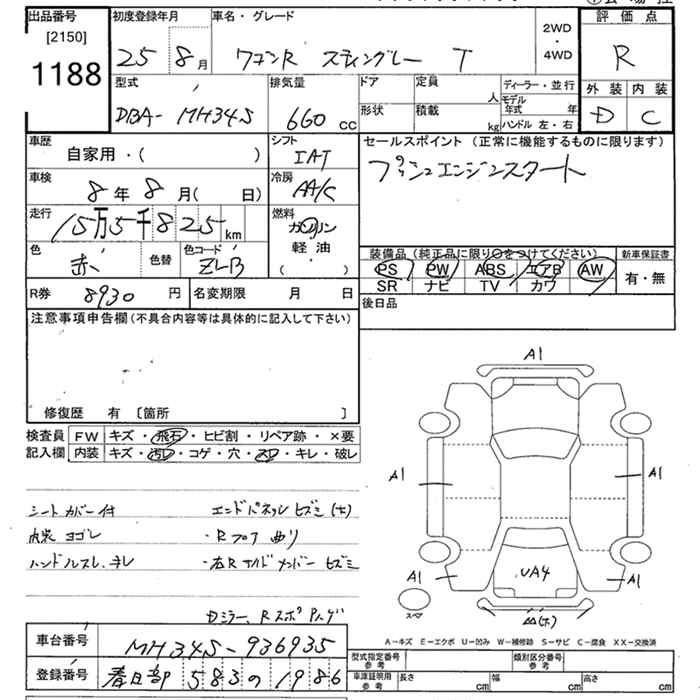 出品番号
[2150]
1188
初度登録年月
25 8月
車名・グレード
ワゴンR スティングレー T
2WD
・
4WD
評価点
R
外装 内装
D C
型式
DBA- MH34S
排気量
660 cc
ドア
定員
人
形状
積載
kg
ディーラー・並行
モデル年式 年
ハンドル 左・右
車歴
自家用・( )
シフト
IAT
セールスポイント (正常に機能するものに限ります)
プッシュエンジンスタート
車検
8年8月( 日)
冷房
AA/C
走行
15万5千825km
燃料
ガソリン
軽油
( ・ )
色
赤
色替
色コード
ZLB
装備品(純正品に限り○をつけてください)
新車保証書
PS PW ABS エアB AW
SR ナビ TV カワ
有・無
R券 8930円
名変期限 月 日
後日品
注意事項申告欄(不具合内容等は具体的に記入して下さい)
修復歴 有 〔箇所 〕
検査員記入欄
FW キズ・飛石・ヒビ割・リペア跡・×要
内装 キズ・汚レ・コゲ・穴・スレ・キレ・破レ
シートカバー付
内装ヨゴレ
ハンドルスレ、キレ
エンドパネルヒズミ(大)
・Rフロア曲リ
・右Rサイドメンバーヒズミ
Dミラー、Rスポ
A1
A1
A1
A1
A1
UA4
スペア
A－キズ E－エクボ U－凹み W－補修跡 S－サビ C－腐食 XX－交換済
車台番号
MH34S-936935
登録番号
春日部 583 の 1986
型式指定番号
参考
類別区分番号
参考
車庫証明用
参考
長さ cm 幅 cm 高さ cm